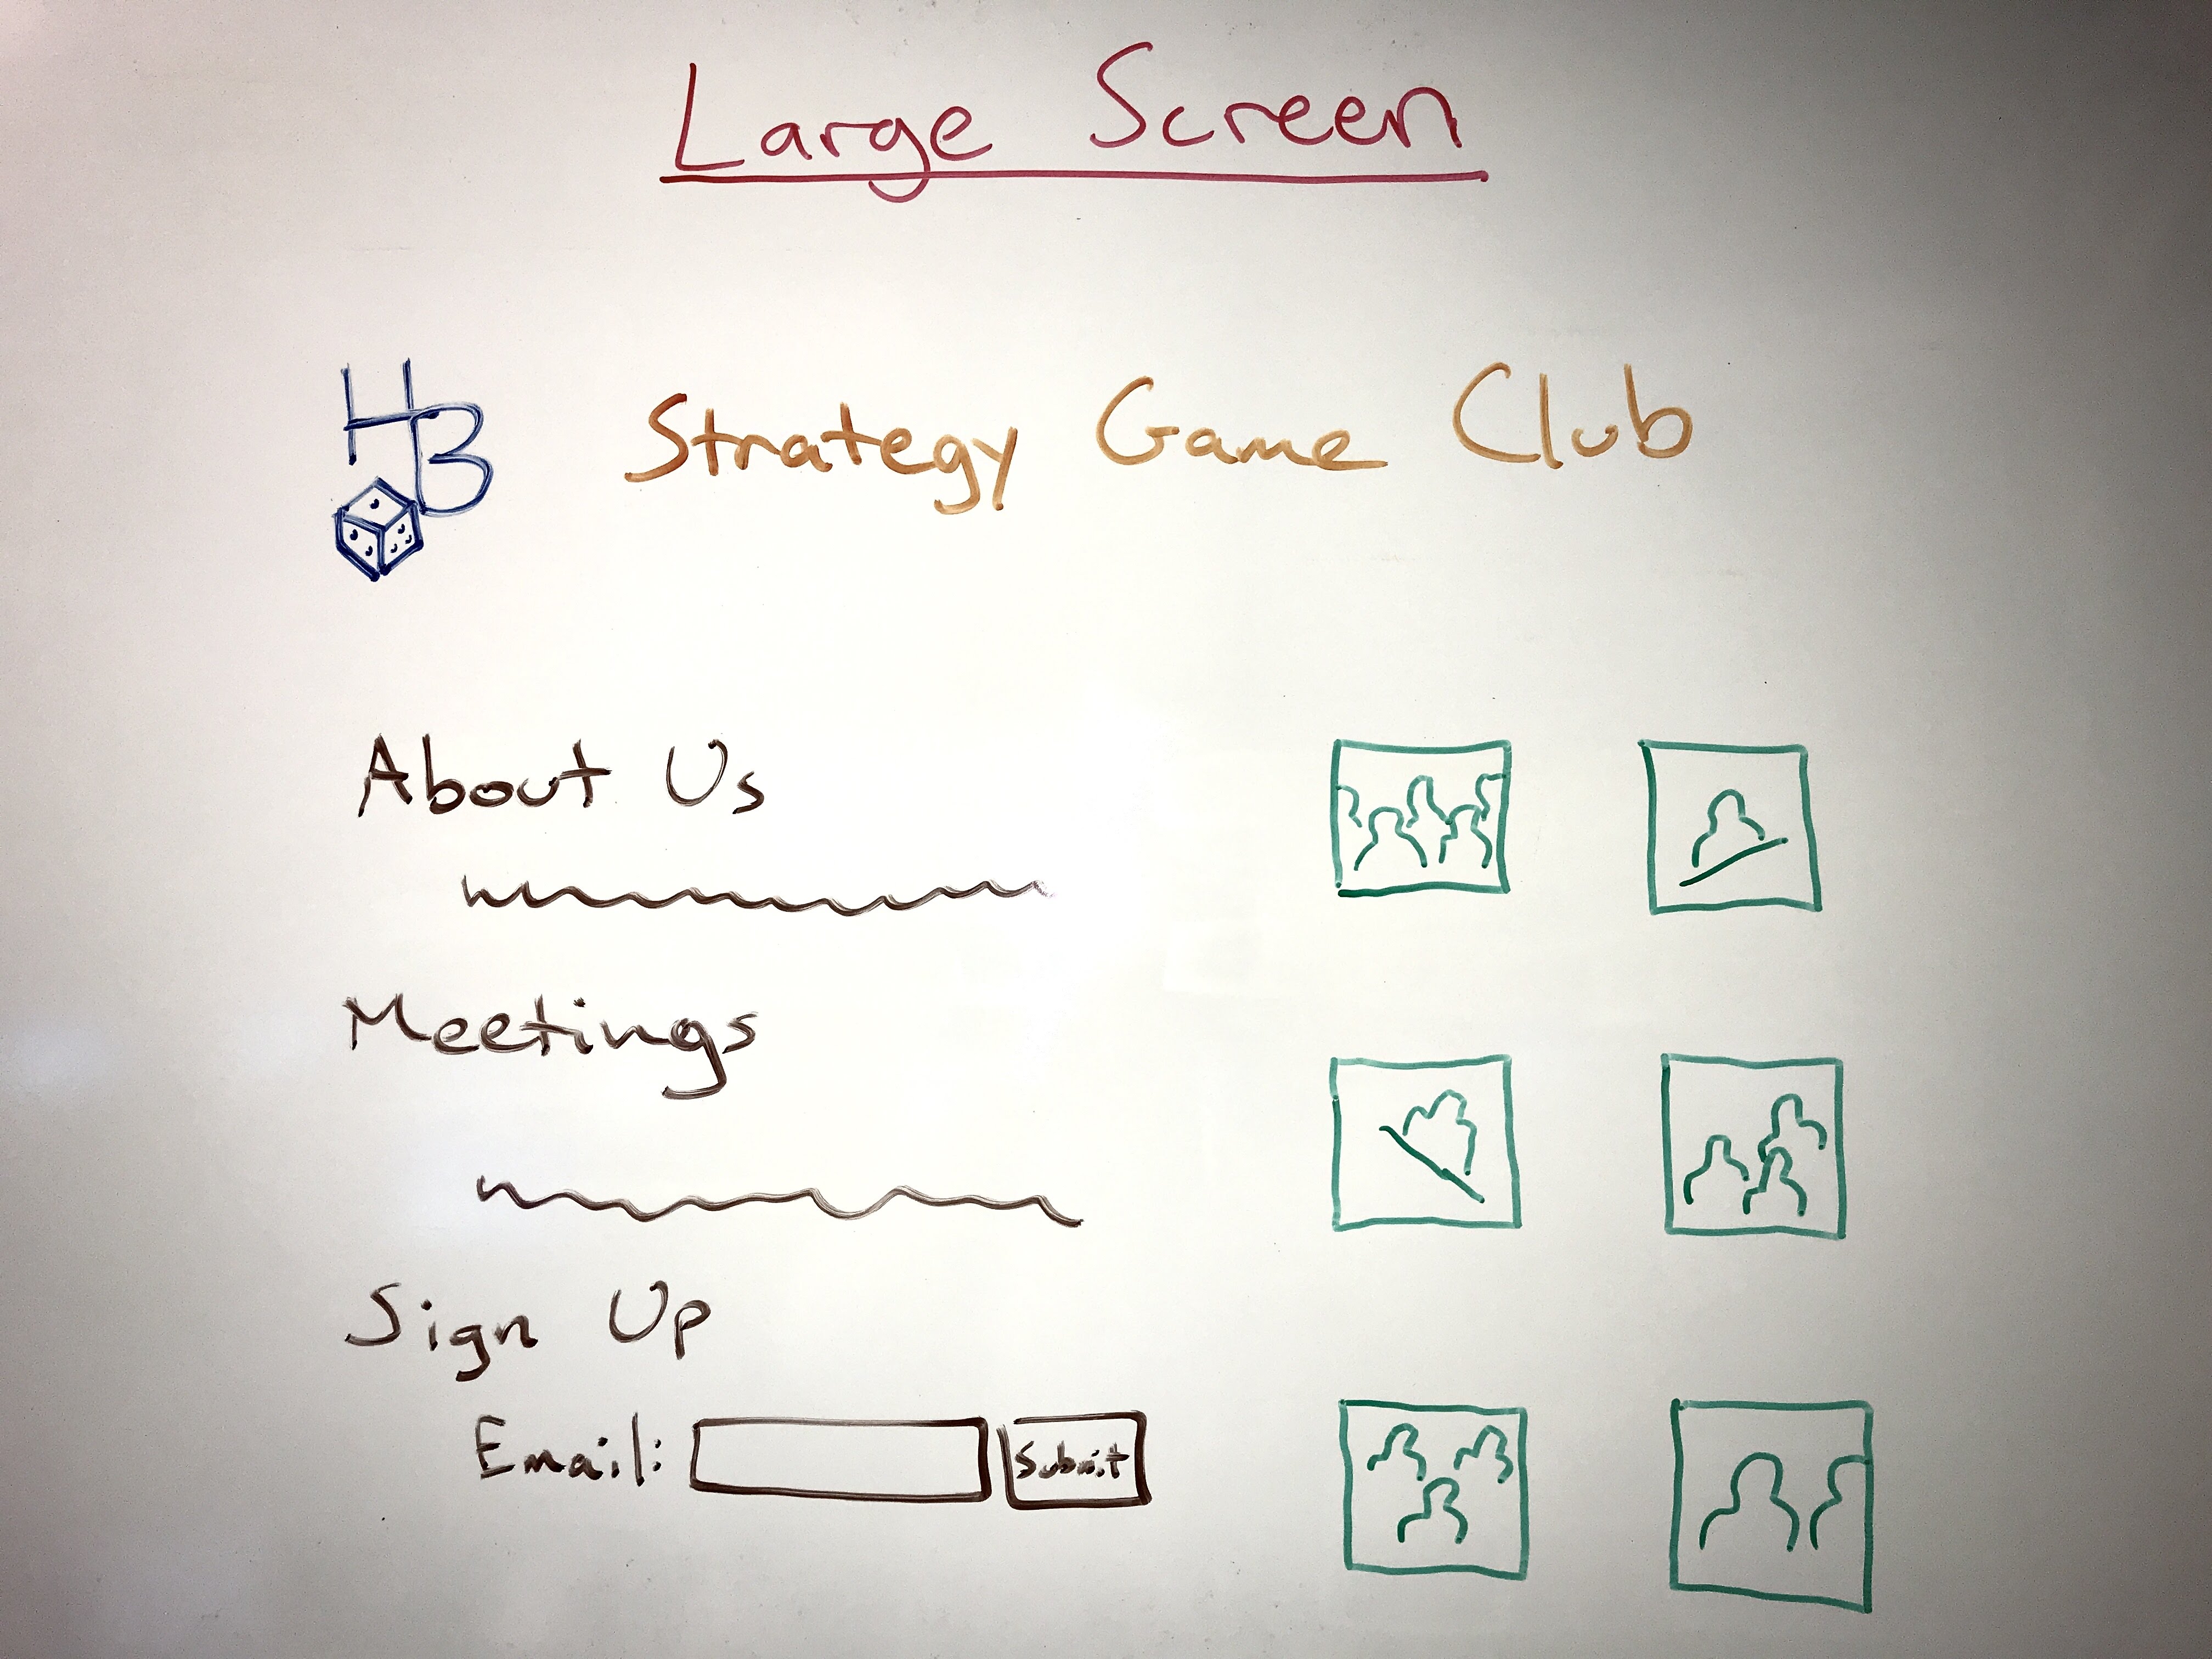 Large Screen
HB
Strategy Game Club
About Us
Meetings
Sign Up
Email:
Submit